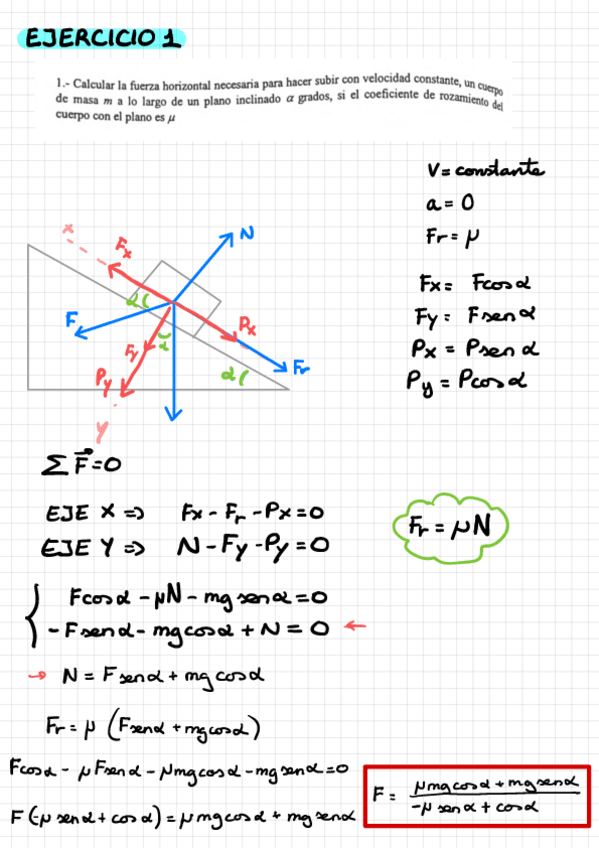 EJERCICIO 1
1.- Calcular la fuerza horizontal necesaria para hacer subir con velocidad constante, un cuerpo
de masa m a lo largo de un plano inclinado α grados, si el coeficiente de rozamiento del
cuerpo con el plano es μ
V = constante
a = 0
Fr = μ
Fx = Fcosα
Fy = Fsenα
Px = Psenα
Py = Pcosα
x
Fx
N
α
F
Px
Fy
α
Fr
Py
α
y
Σ F⃗ = 0
EJE X => Fx - Fr - Px = 0
EJE Y => N - Fy - Py = 0
Fr = μN
Fcosα - μN - mg senα = 0
- Fsenα - mgcosα + N = 0 ←
→ N = Fsenα + mgcosα
Fr = μ (Fsenα + mgcosα)
Fcosα - μFsenα - μmgcosα - mgsenα = 0
F(-μ senα + cosα) = μmgcosα + mgsenα
F = μmgcosα + mgsenα / -μ senα + cosα